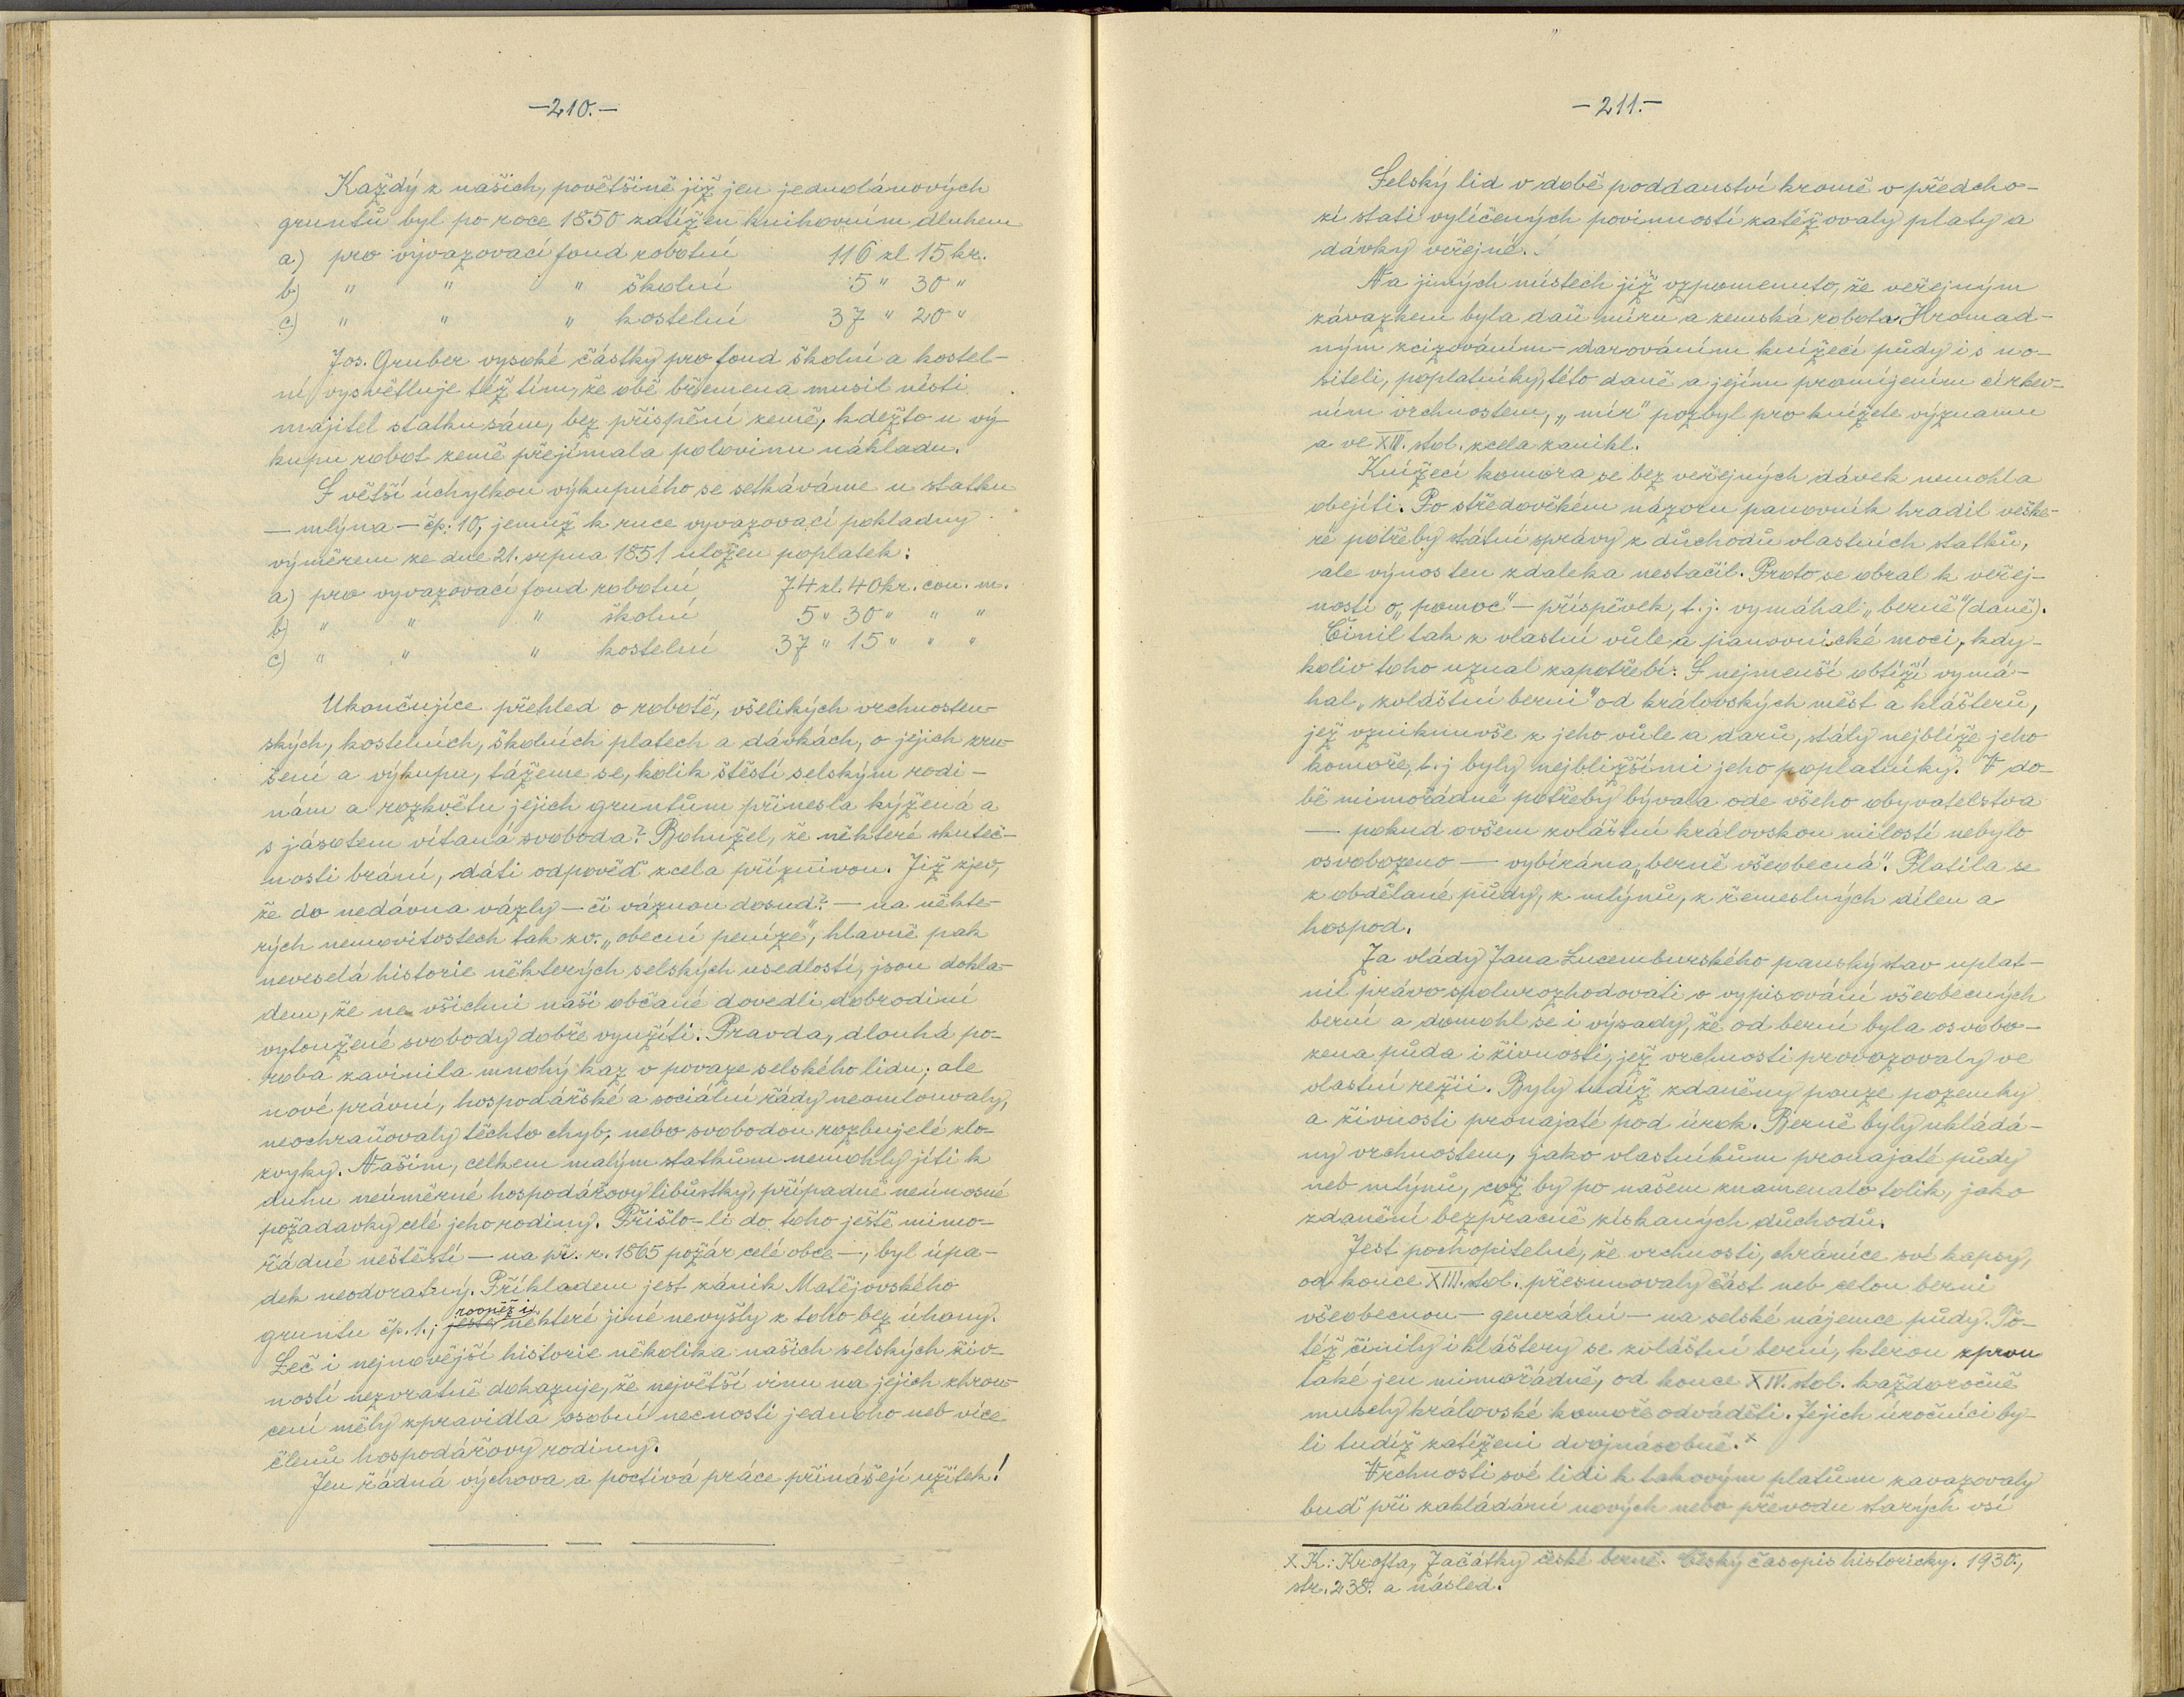 —210.—
Každý z našich, povětšině již jen jednolánových
gruntů byl po roce 1850 zatížen knihovním dluhem
a) pro vyvazovací fond robotní 116 zl. 15 kr.
b) " " " školní 5 " 30 "
c) " " " kostelní 37 " 20 "
Jos. Gruber vysoké částky pro fond školní a kostel-
ní vysvětluje též tím, že obě břemena musil nésti
majitel statku sám, bez přispění země, kdežto u vý-
kupu robot země přejímala polovinu nákladu.
S větší úchylkou výkupného se setkáváme u statku
— mlýna — čp. 10, jemuž k ruce vyvazovací pokladny
výměrem ze dne 21. srpna 1851 uložen poplatek:
a) pro vyvazovací fond robotní 74 zl. 40 kr. con. m.
b) " " " školní 5 " 30 " " "
c) " " " kostelní 37 " 15 " " "
Ukončujíce přehled o robotě, všelikých vrchnosten-
ských, kostelních, školních platech a dávkách, o jejich zru-
šení a výkupu, tážeme se, kolik štěstí selským rodi-
nám a rozkvětu jejich gruntům přinesla kýžená a
s jásotem vítaná svoboda? Bohužel, že některé skuteč-
nosti brání, dáti odpověď zcela příznivou. Již zjev,
že do nedávna vázly — či váznou dosud? — na někte-
rých nemovitostech tak zv. „obecní peníze", hlavně pak
neveselá historie některých selských usedlostí, jsou dokla-
dem, že ne všichni naši občané dovedli dobrodiní
vytoužené svobody dobře využíti. Pravda, dlouhá po-
roba zavinila mnohý kaz v povaze selského lidu; ale
nové právní, hospodářské a sociální řády neomlouvaly,
neochraňovaly těchto chyb, nebo svobodou rozbujelé zlo-
zvyky. Našim, celkem malým statkům nemohly jíti k
duhu neúměrné hospodářovy libůstky, případně neúnosné
požadavky celé jeho rodiny. Přišlo-li do toho ještě mimo-
řádné neštěstí — na př. r. 1865 požár celé obce —, byl úpa-
dek neodvratný. Příkladem jest zánik Matějovského
rovněž i
gruntu čp. 1.; ještě některé jiné nevyšly z toho bez úhony.
Leč i nejnovější historie několika našich selských živ-
ností nezvratně dokazuje, že největší vinu na jejich zhrou-
cení měly zpravidla osobní necnosti jednoho neb více
členů hospodářovy rodiny.
Jen řádná výchova a poctivá práce přinášejí užitek!
—211.—
Selský lid v době poddanství kromě v předcho-
zí stati vylíčených povinností zatěžovaly platy a
dávky veřejné.
Na jiných místech již vzpomenuto, že veřejným
závazkem byla daň míru a zemská robota. Hromad-
ným zcizováním – darováním knížecí půdy i s no-
siteli, poplatníky, této daně a jejím promíjením církev-
ním vrchnostem, „mír" pozbyl pro knížete významu
a ve XIII. stol. zcela zanikl.
Knížecí komora se bez veřejných dávek nemohla
obejíti. Po středověkém názoru panovník hradil veške-
ré potřeby státní správy z důchodů vlastních statků,
ale výnos ten zdaleka nestačil. Proto se obral k veřej-
nosti o „pomoc" — příspěvek, t. j. vymáhal „berně" (daně).
Činil tak z vlastní vůle a panovnické moci, kdy-
koliv toho uznal zapotřebí. S nejmenší obtíží vymá-
hal „zvláštní berni" od královských měst a klášterů,
jež vzniknuvše z jeho vůle a darů, stály nejblíže jeho
komoře, t. j byly nejbližšími jeho poplatníky. V do-
bě mimořádné potřeby bývala ode všeho obyvatelstva
— pokud ovšem zvláštní královskou milostí nebylo
osvobozeno — vybírána „berně všeobecná". Platila se
z obdělané půdy, z mlýnů, z řemeslných dílen a
hospod.
Za vlády Jana Lucemburského panský stav uplat-
nil právo spolurozhodovati o vypisování všeobecných
berní a domohl se i výsady, že od berní byla osvobo-
zena půda i živnosti, jež vrchnosti provozovaly ve
vlastní režii. Byly tudíž zdaněny pouze pozemky
a živnosti pronajaté pod úrok. Berně byly ukládá-
ny vrchnostem, jako vlastníkům pronajaté půdy
neb mlýnů, což by po našem znamenalo tolik, jako
zdanění bezpracně získaných důchodů.
Jest pochopitelné, že vrchnosti, chráníce své kapsy,
od konce XIII. stol. přesunovaly část neb celou berni
všeobecnou — generální — na selské nájemce půdy. To-
též činily i kláštery se zvláštní berní, kterou zprvu
také jen mimořádně, od konce XIV. stol. každoročně
musely královské komoře odváděti. Jejich úročníci by-
li tudíž zatíženi dvojnásobně. x
Vrchnosti své lidi k takovým platům zavazovaly
buď při zakládání nových nebo převodu starých vsí
x K. Krofta, Začátky české berně. Český časopis historický. 1930.,
str. 238. a násled.